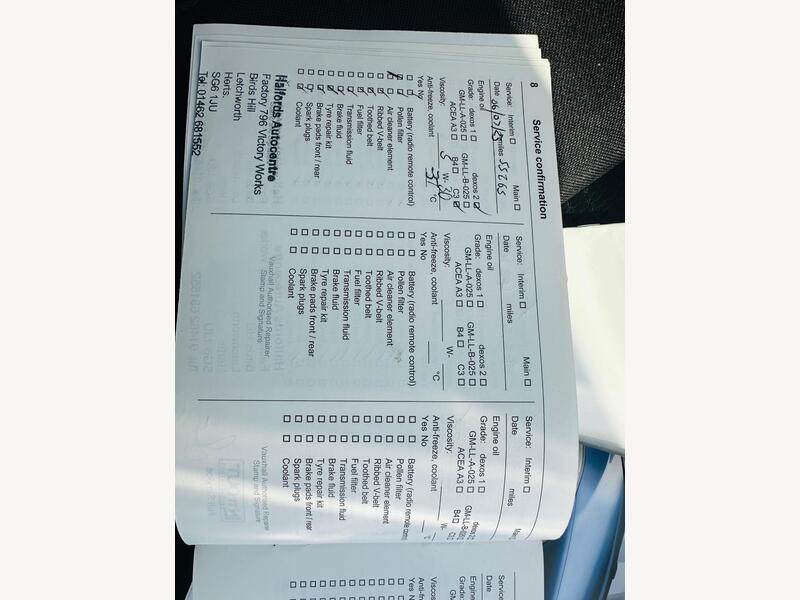 8
Service confirmation
Service: Interim ☐ Main ☐
Date 06/02/25 miles 55265
Engine oil
Grade: dexos 1 ☐ dexos 2 ☑
GM-LL-A-025 ☐ GM-LL-B-025 ☐
ACEA A3 ☐ B4 ☐ C3 ☑
Viscosity: 5 W- 30
Anti-freeze, coolant -37 °C
Yes No
Battery (radio remote control)
Pollen filter
Air cleaner element
Ribbed V-belt
Toothed belt
Fuel filter
Transmission fluid
Brake fluid
Tyre repair kit
Brake pads front / rear
Spark plugs
Coolant
Halfords Autocentre
Factory 796 Victory Works
Birds Hill
Letchworth
Herts.
SG6 1JU
Tel. 01462 681552
Service: Interim ☐ Main ☐
Date miles
Engine oil
Grade: dexos 1 ☐ dexos 2 ☐
GM-LL-A-025 ☐ GM-LL-B-025 ☐
ACEA A3 ☐ B4 ☐ C3 ☐
Viscosity: W-
Anti-freeze, coolant °C
Yes No
☐ ☐ Battery (radio remote control)
☐ ☐ Pollen filter
☐ ☐ Air cleaner element
☐ ☐ Ribbed V-belt
☐ ☐ Toothed belt
☐ ☐ Fuel filter
☐ ☐ Transmission fluid
☐ ☐ Brake fluid
☐ ☐ Tyre repair kit
☐ ☐ Brake pads front / rear
☐ ☐ Spark plugs
☐ ☐ Coolant
Vauxhall Authorised Repairer
Stamp and Signature
Service: Interim ☐
Date miles
Engine oil
Grade: dexos 1 ☐ dexos 2
GM-LL-A-025 ☐ GM-LL-B-025
ACEA A3 ☐ B4 ☐ C3
Viscosity: W-
Anti-freeze, coolant
Yes No
☐ ☐ Battery (radio remote control)
☐ ☐ Pollen filter
☐ ☐ Air cleaner element
☐ ☐ Ribbed V-belt
☐ ☐ Toothed belt
☐ ☐ Fuel filter
☐ ☐ Transmission fluid
☐ ☐ Brake fluid
☐ ☐ Tyre repair kit
☐ ☐ Brake pads front / rear
☐ ☐ Spark plugs
☐ ☐ Coolant
Vauxhall Authorised Repairer
Stamp and Signature
Service:
Date
Engine oil
Grade:
Yes No